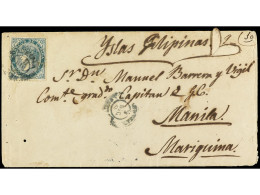 Yslas Filipinas
Sr. Dn. Manuel Barrera y Vigil
Comte. graddo. Capitan
Manila
Mariquina